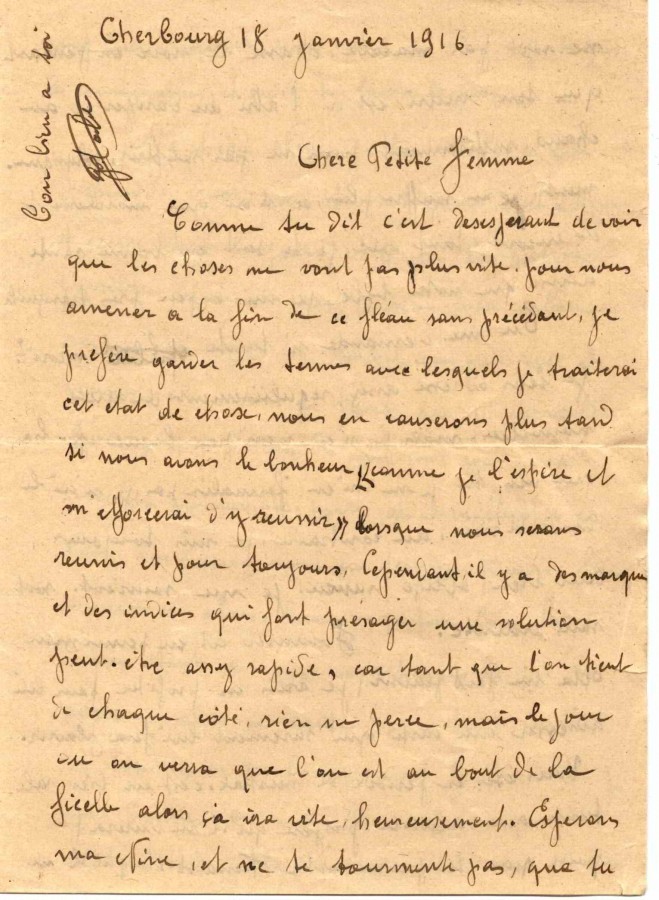 Cherbourg 18 janvier 1916
Chere Petite Femme
Comme tu dit c'est deseserant de voir
que les choses ne vont pas plus vite. pour nous
amener a la fin de ce fléau sans précédant, je
prefére garder les termes avec lesquels je traiterai
cet etat de chose, nous en causerons plus tard
si nous avons le bonheur "comme je l'espére et
m'efforcerai d'y reussir" lorsque nous serons
reunis et pour toujours, Cependant, il y a des marques
et des indices qui font présager une solution
peut-être assez rapide, car tant que l'on tient
de chaque côté, rien ne perce, mais le jour
ou on verra que l'on est au bout de la
ficelle alors ça ira vite, heureusement. Esperons
ma et ne te tourmente pas, que tu
bien a toi